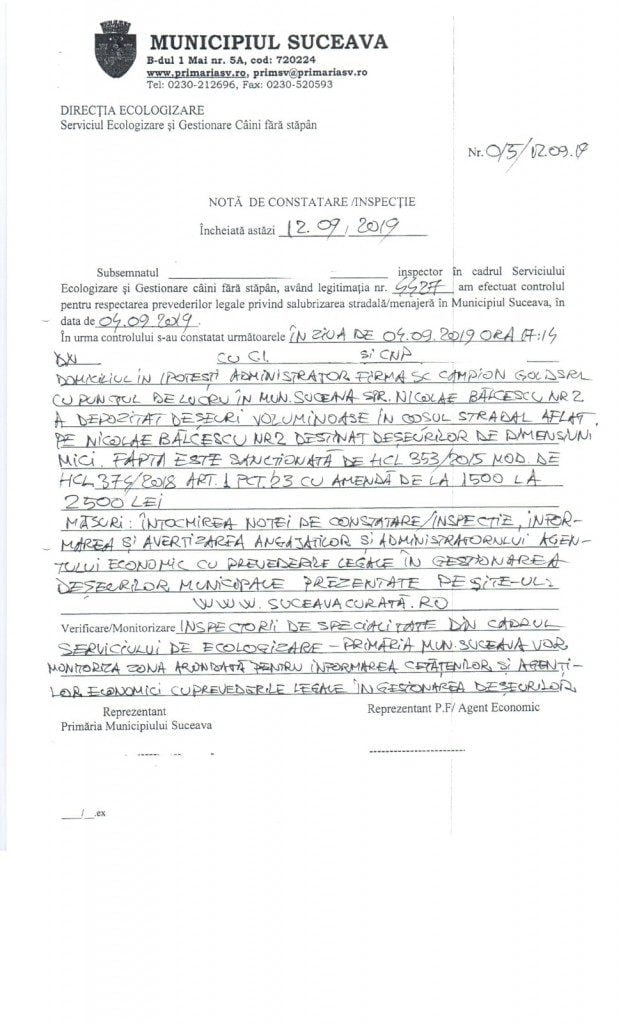 MUNICIPIUL SUCEAVA
B-dul 1 Mai nr. 5A, cod: 720224
www.primariasv.ro, primsv@primariasv.ro
Tel: 0230-212696, Fax: 0230-520593
DIRECȚIA ECOLOGIZARE
Serviciul Ecologizare și Gestionare Câini fără stăpân
Nr. 015/12.09.19
NOTĂ DE CONSTATARE /INSPECȚIE
Încheiată astăzi 12.09.2019
Subsemnatul inspector în cadrul Serviciului
Ecologizare și Gestionare câini fără stăpân, având legitimația nr. 4427 am efectuat controlul
pentru respectarea prevederilor legale privind salubrizarea stradală/menajeră în Municipiul Suceava, în
data de 04.09.2019.
În urma controlului s-au constatat următoarele ÎN ZIUA DE 04.09.2019 ORA 17:14
CU CI. SI CNP
DOMICILIUL ÎN IPOTEȘTI ADMINISTRATOR FIRMA SC CAMPION GOLD SRL
CU PUNCTUL DE LUCRU ÎN MUN. SUCEAVA STR. NICOLAE BĂLCESCU NR 2
A DEPOZITAT DEȘEURI VOLUMINOASE ÎN COȘUL STRADAL AFLAT
PE NICOLAE BĂLCESCU NR 2 DESTINAT DEȘEURILOR DE DIMENSIUNI
MICI. FAPTA ESTE SANCTIONATĂ DE HCL 353/2015 MOD. DE
HCL 374/2018 ART. 1 PCT. 23 CU AMENDĂ DE LA 1500 LA
2500 LEI
MĂSURI: ÎNTOCMIREA NOTEI DE CONSTATARE/INSPECȚIE, INFOR-
MAREA ȘI AVERTIZAREA ANGAJAȚILOR ȘI ADMINISTRATORULUI AGEN-
TULUI ECONOMIC CU PREVEDERILE LEGALE ÎN GESTIONAREA
DEȘEURILOR MUNICIPALE PREZENTATE PE SITE-UL:
WWW.SUCEAVACURATĂ.RO
Verificare/Monitorizare INSPECTORII DE SPECIALITATE DIN CADRUL
SERVICIULUI DE ECOLOGIZARE - PRIMĂRIA MUN. SUCEAVA VOR
MONITORIZA ZONA ARONDATĂ PENTRU INFORMAREA CETĂȚENILOR ȘI AGENȚI-
LOR ECONOMICI CU PREVEDERILE LEGALE ÎN GESIONAREA DEȘEURILOR
Reprezentant
Primăria Municipiului Suceava
Reprezentant P.F/ Agent Economic
__/_.ex